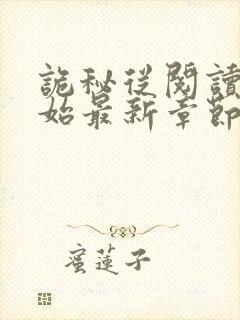 詭秘從閱讀
始最新章節
蜜蓮子